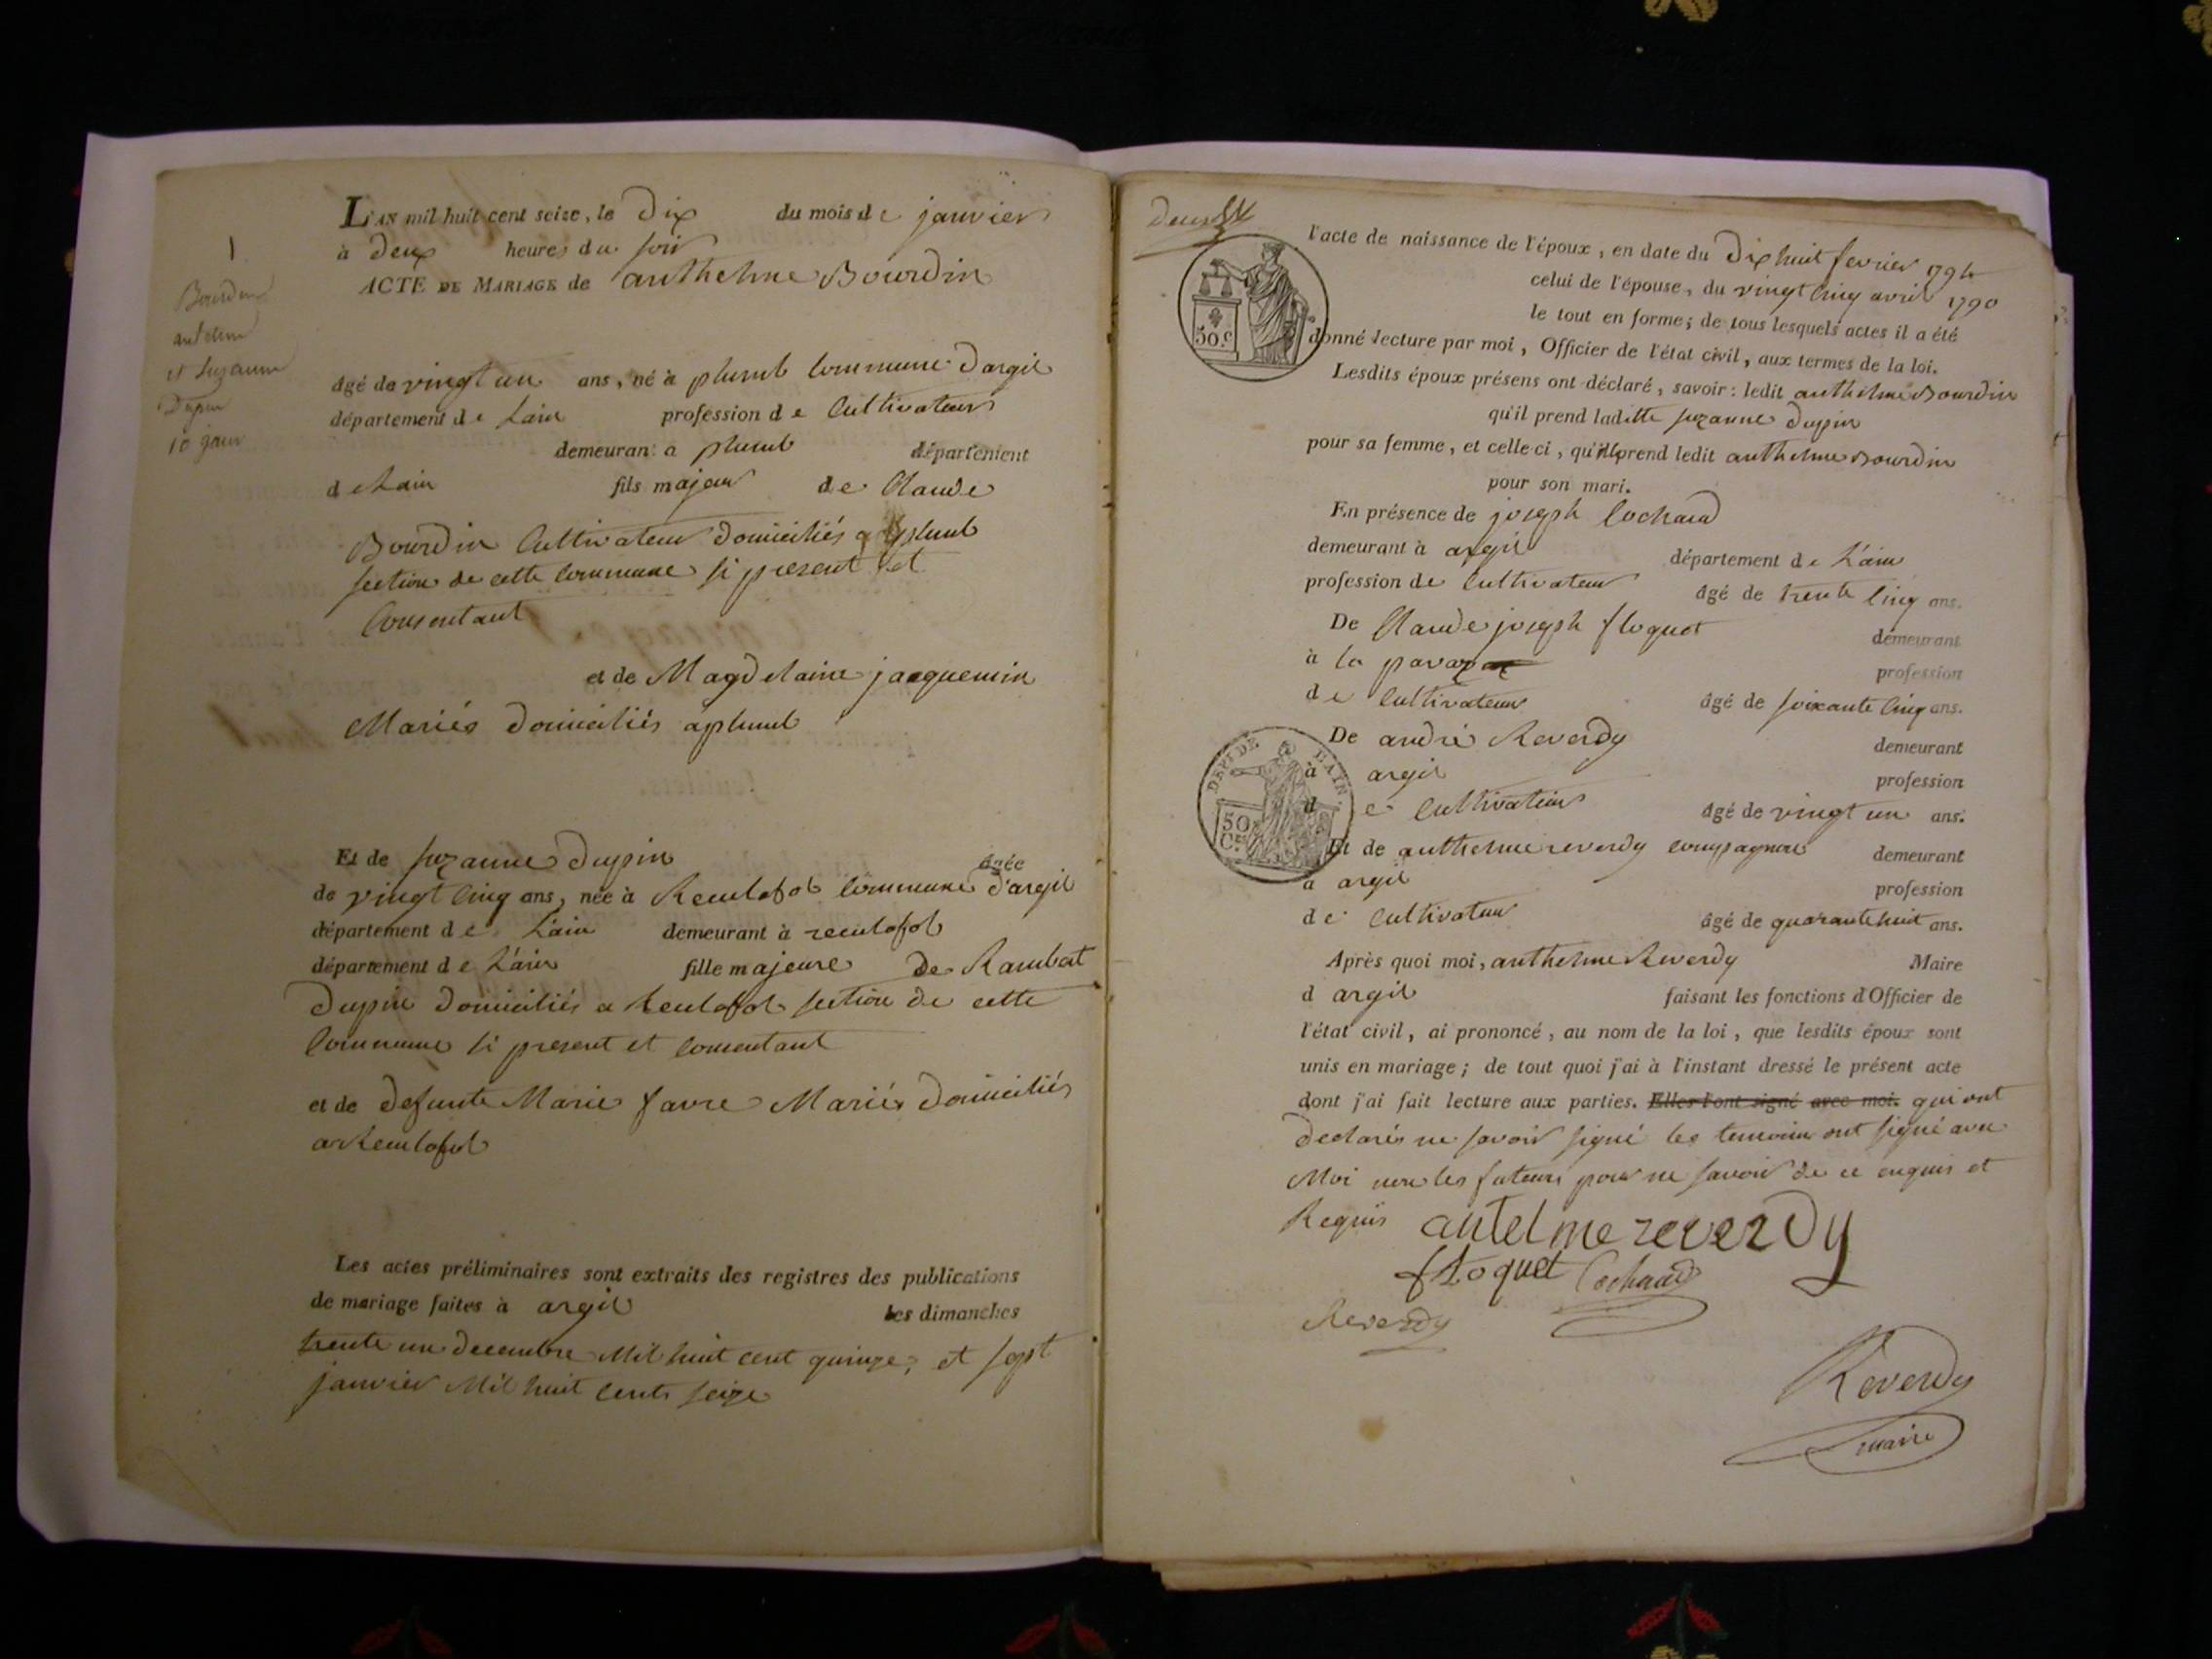 1
Bourdin
antelme
et Suzanne
Dupin
10 janv
L'AN mil huit cent seize, le Dix du mois de janvier
à Deux heures du soir
ACTE DE MARIAGE de anthelme Bourdin
âgé de vingt un ans, né à plumb commune d'argil
département de Lain profession de Cultivateur
demeurant a plumb département
de Lain fils majeur de Claude
Bourdin Cultivateur domiciliés a plumb
section de cette commune si present et
Consentant
et de Magdelaine jacquemin
Mariés domiciliés a plumb
Et de suzanne Dupin âgée
de vingt cinq ans, née à Reculafol commune d'argil
département de L'ain demeurant à reculafol
département de L'ain fille majeure de Rambert
Dupin domiciliés a Reculafol section de cette
Commune si present et consentant
et de defunte Marie favre Mariés domiciliés
a Reculafol
Les actes préliminaires sont extraits des registres des publications
de mariage faites à argil les dimanches
trente un decembre Mil huit cent quinze, et sept
janvier Mil huit cents seize
Deux
l'acte de naissance de l'époux, en date du Dix huit fevrier 1794
celui de l'épouse, du vingt cinq avril 1790
le tout en forme; de tous lesquels actes il a été
50.c
donné lecture par moi, Officier de l'état civil, aux termes de la loi.
Lesdits époux présens ont déclaré, savoir: ledit anthelme Bourdin
qu'il prend laditte suzanne Dupin
pour sa femme, et celle-ci, qu'elle prend ledit anthelme Bourdin
pour son mari.
En présence de joseph Cochard
demeurant à argil département de L'ain
profession de Cultivateur âgé de trente cinq ans.
De Claude joseph floquet demeurant
à la pavaz profession
de Cultivateur âgé de soixante cinq ans.
De andré Reverdy demeurant
à argil profession
de Cultivateur âgé de vingt un ans.
DEPT DE L'AIN
50 Ces
Et de anthelme reverdy compagnon demeurant
à argil profession
de Cultivateur âgé de quarante huit ans.
Après quoi moi, anthelme Reverdy Maire
d argil faisant les fonctions d'Officier de
l'état civil, ai prononcé, au nom de la loi, que lesdits époux sont
unis en mariage; de tout quoi j'ai à l'instant dressé le présent acte
dont j'ai fait lecture aux parties. Elles l'ont signé avec moi. qui ont
declarés ne savoir signé les temoins ont signé avec
Moi non les futeurs pour ne savoir de ce enquis et
Requis antelme reverdy
floquet Cochard
Reverdy
Reverdy
maire